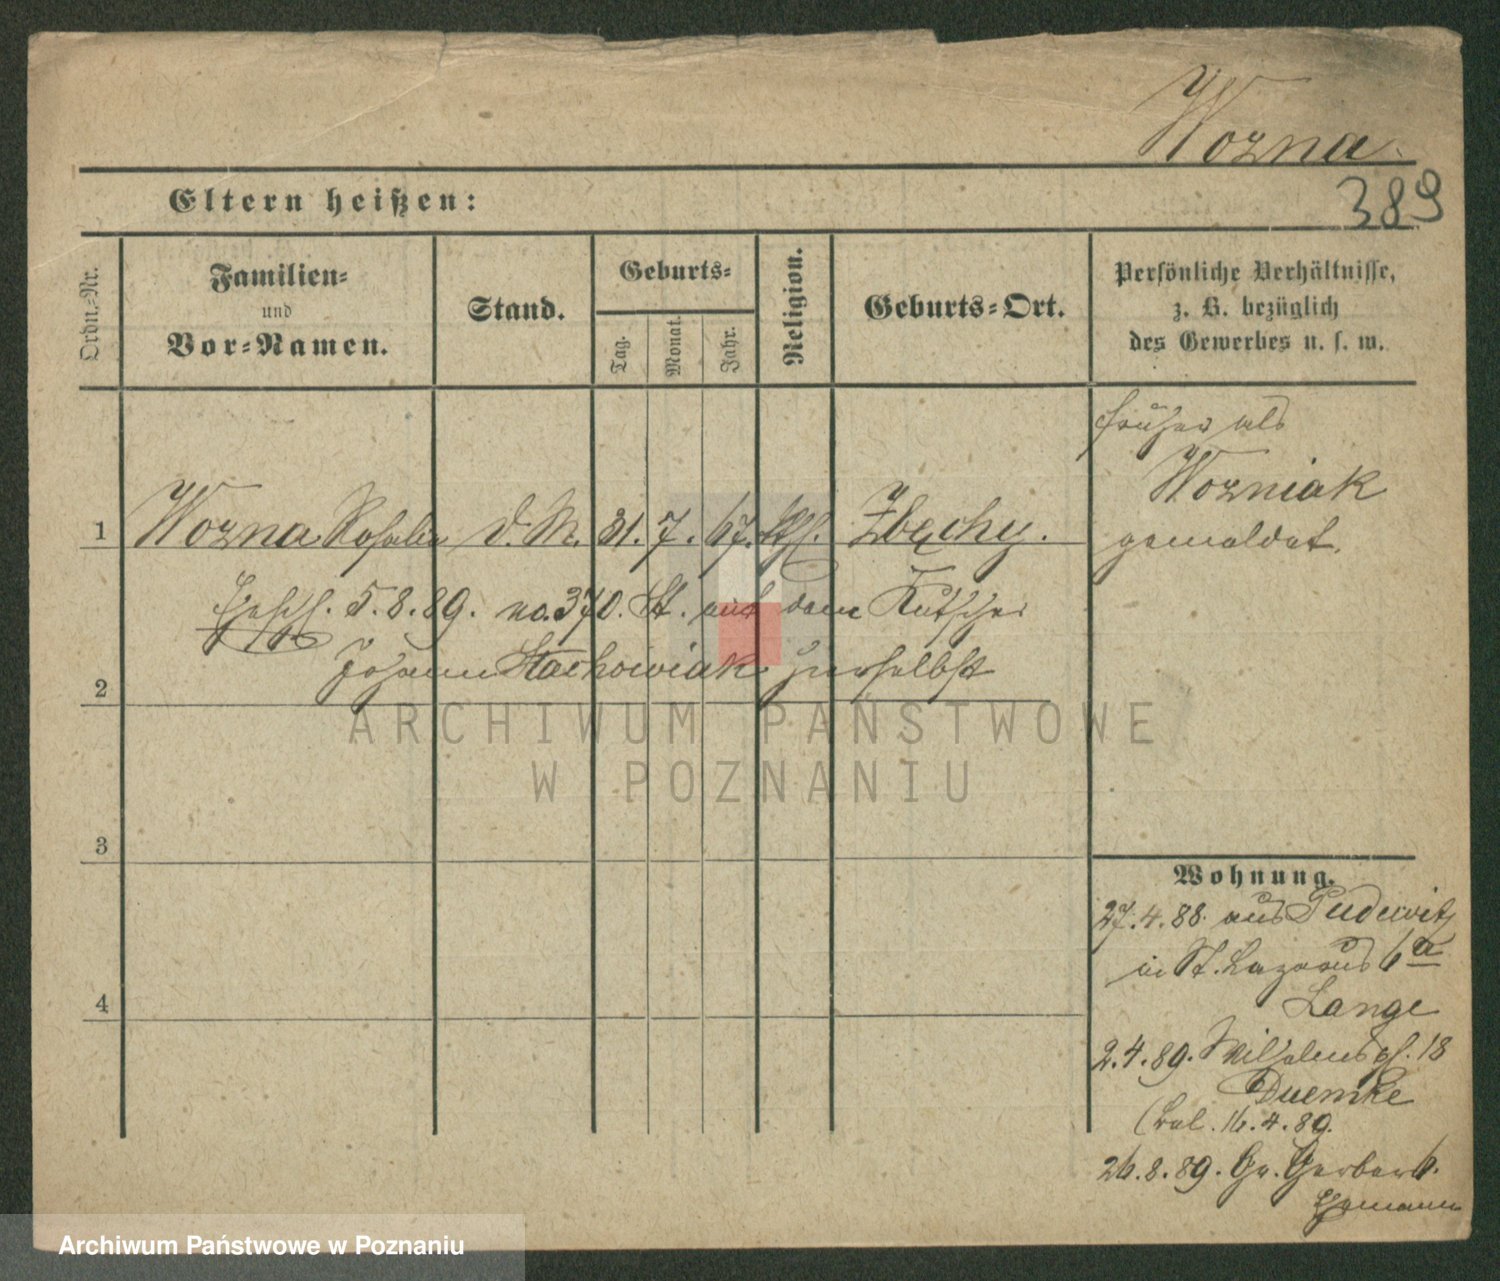 Wozna.
389
Eltern heißen:
Ordn.-Nr.
Familien-
und
Vor-Namen.
Stand.
Geburts-
Tag.
Monat.
Jahr.
Religion.
Geburts-Ort.
Persönliche Verhältnisse,
z. B. bezüglich
des Gewerbes u. s. w.
früher als
Wozniak
gemeldet.
1 Wozna Rosalie d. M. 31. 7. 67. kth. Zbęchy.
Ehesch. 5.8.89. no. 370. St. mit dem Kutscher
Johann Stachowiak hierselbst
2
3
4
Wohnung.
27.4.88. aus Pudewitz
in St. Lazarus 6a
Lange
2.4.89. Wilhelmspl. 18
Duemke
16.4.89.
26.8.89. Gr. Gerber 6.
ARCHIWUM PAŃSTWOWE
W POZNANIU
Archiwum Państwowe w Poznaniu